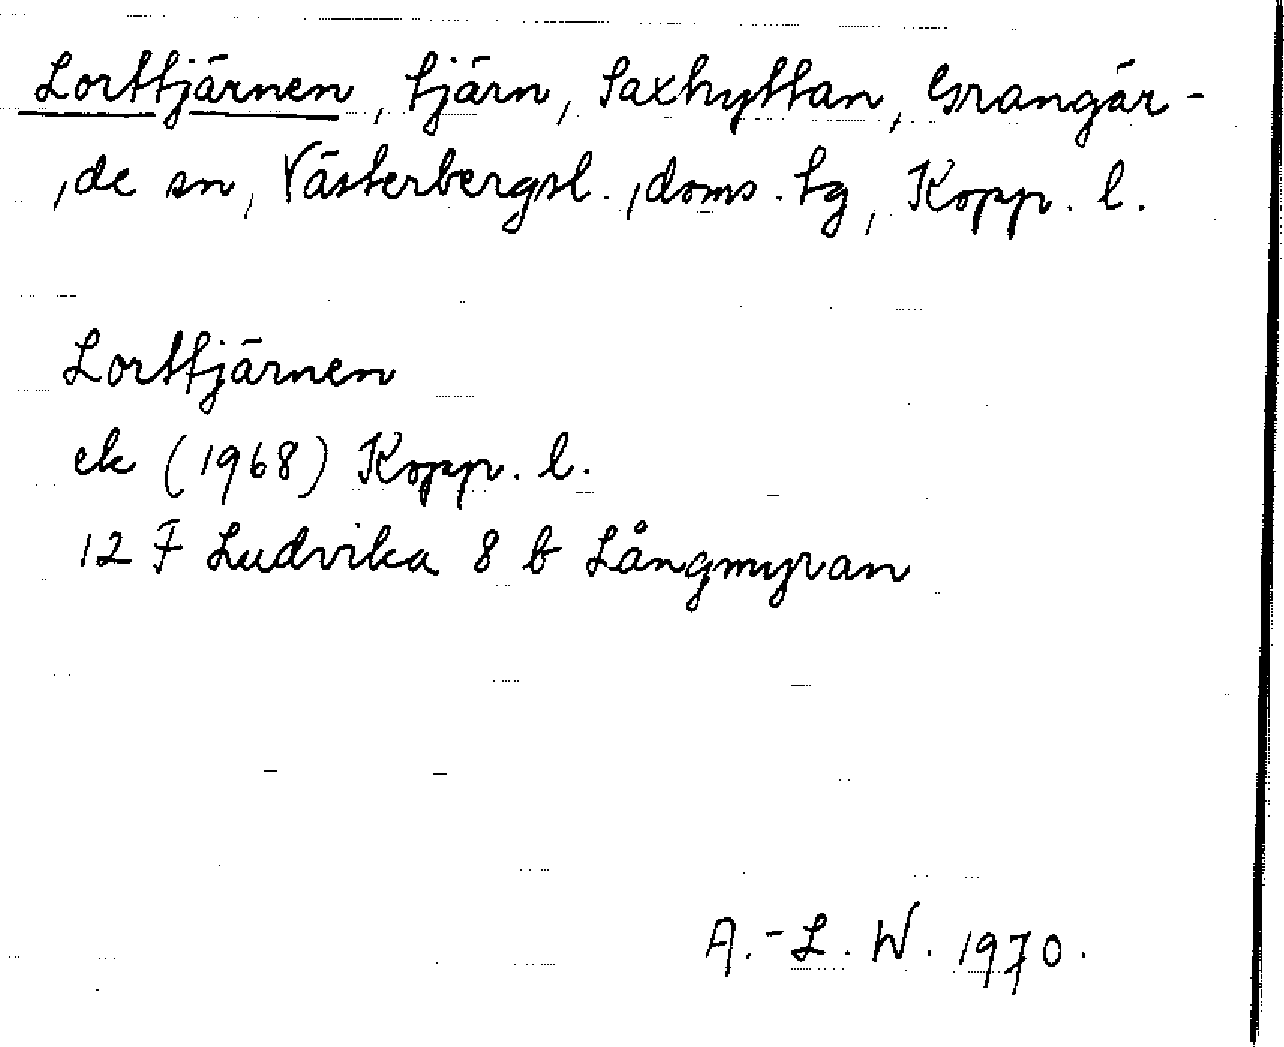 Lorttjärnen, tjärn, Saxhyttan, Grangär-
de sn, Västerbergsl. doms. tg, Kopp. l.
Lorttjärnen
ek (1968) Kopp. l.
12 F Ludvika 8 b Långmyran
A.-L. W. 1970.